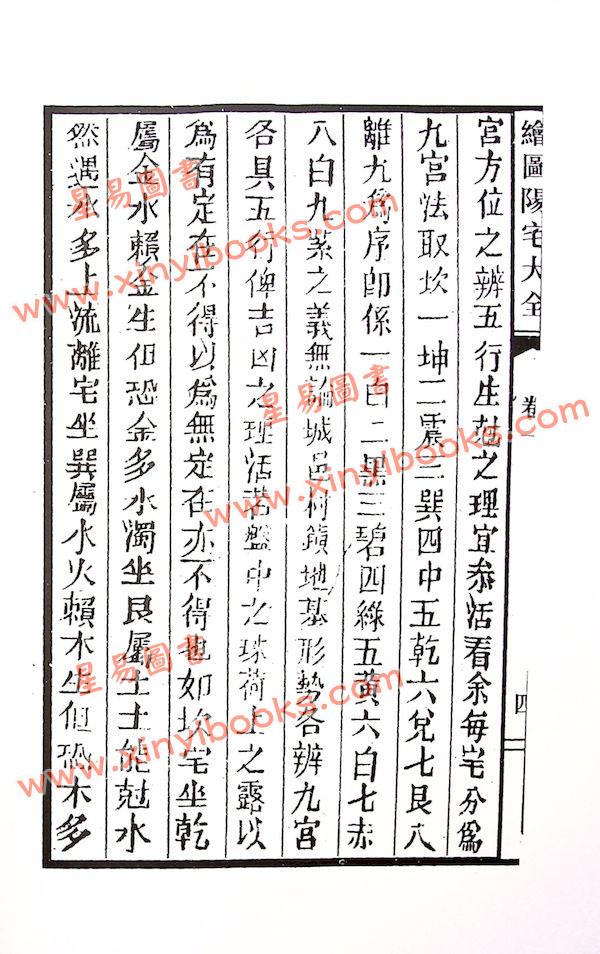 繪圖陽宅大全 卷一 四
宮方位之辨五行生尅之理宜叅活看余每宅分爲
九宮法取坎一坤二震三巽四中五乾六兌七艮八
離九爲序卽係一白二黑三碧四綠五黃六白七赤
八白九紫之義無論城邑村鎮地基形勢各辨九宮
各具五行俾吉凶之理活若盤中之珠荷上之露以
爲有定在不得以爲無定在亦不得也如坎宅坐乾
屬金水賴金生但恐金多水濁坐艮屬土土能尅水
然遇水多土流離宅坐巽屬水火賴木生但恐木多
星易圖書
www.xinyibooks.com
星易圖書
www.xinyibooks.com
星易圖書
www.xinyibooks.com